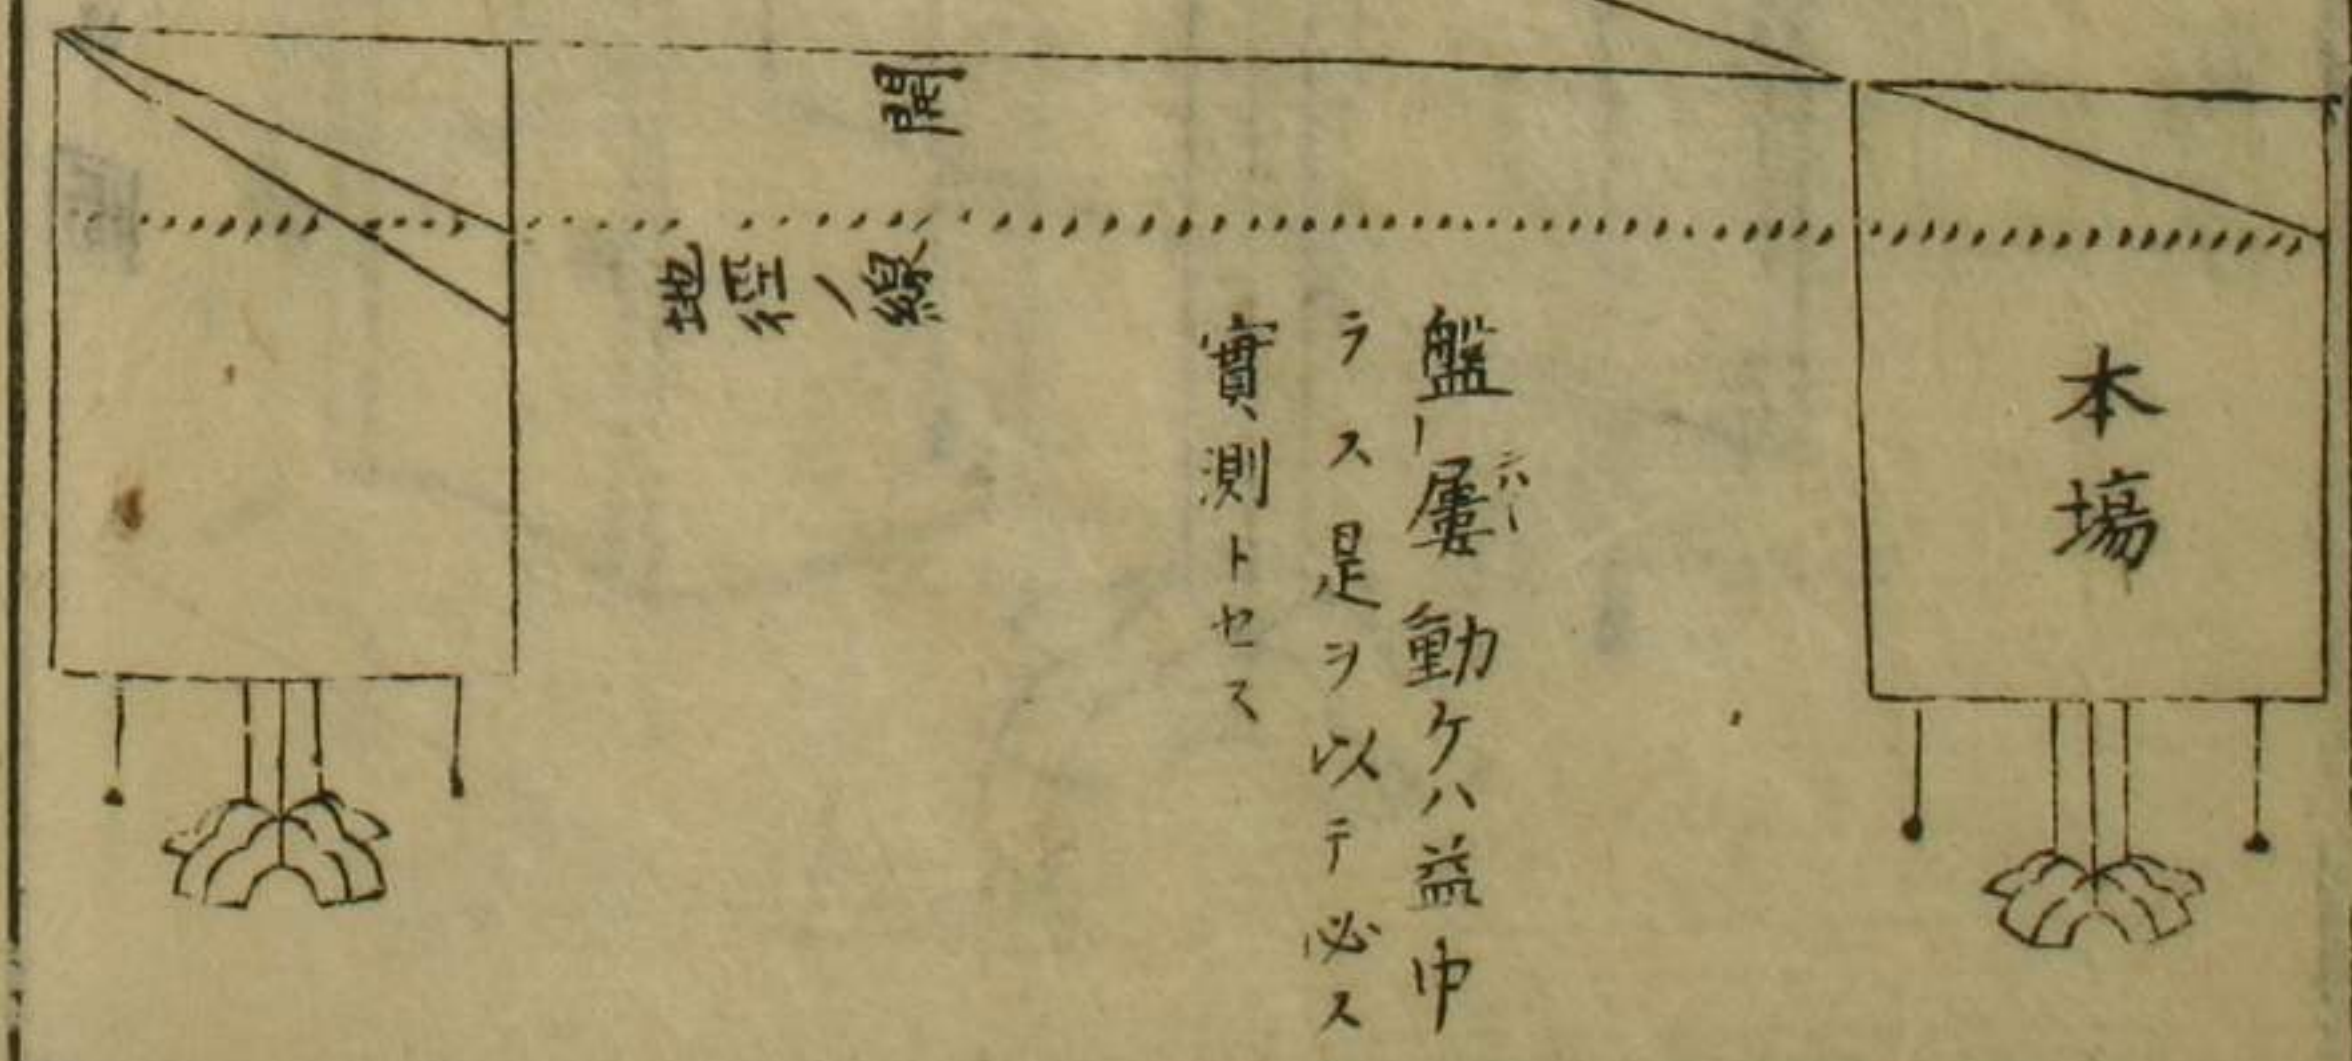 本塲
盤屢動ケハ益中
ラス是ヲ以テ必ス
實測トセス
開
地徑ノ線